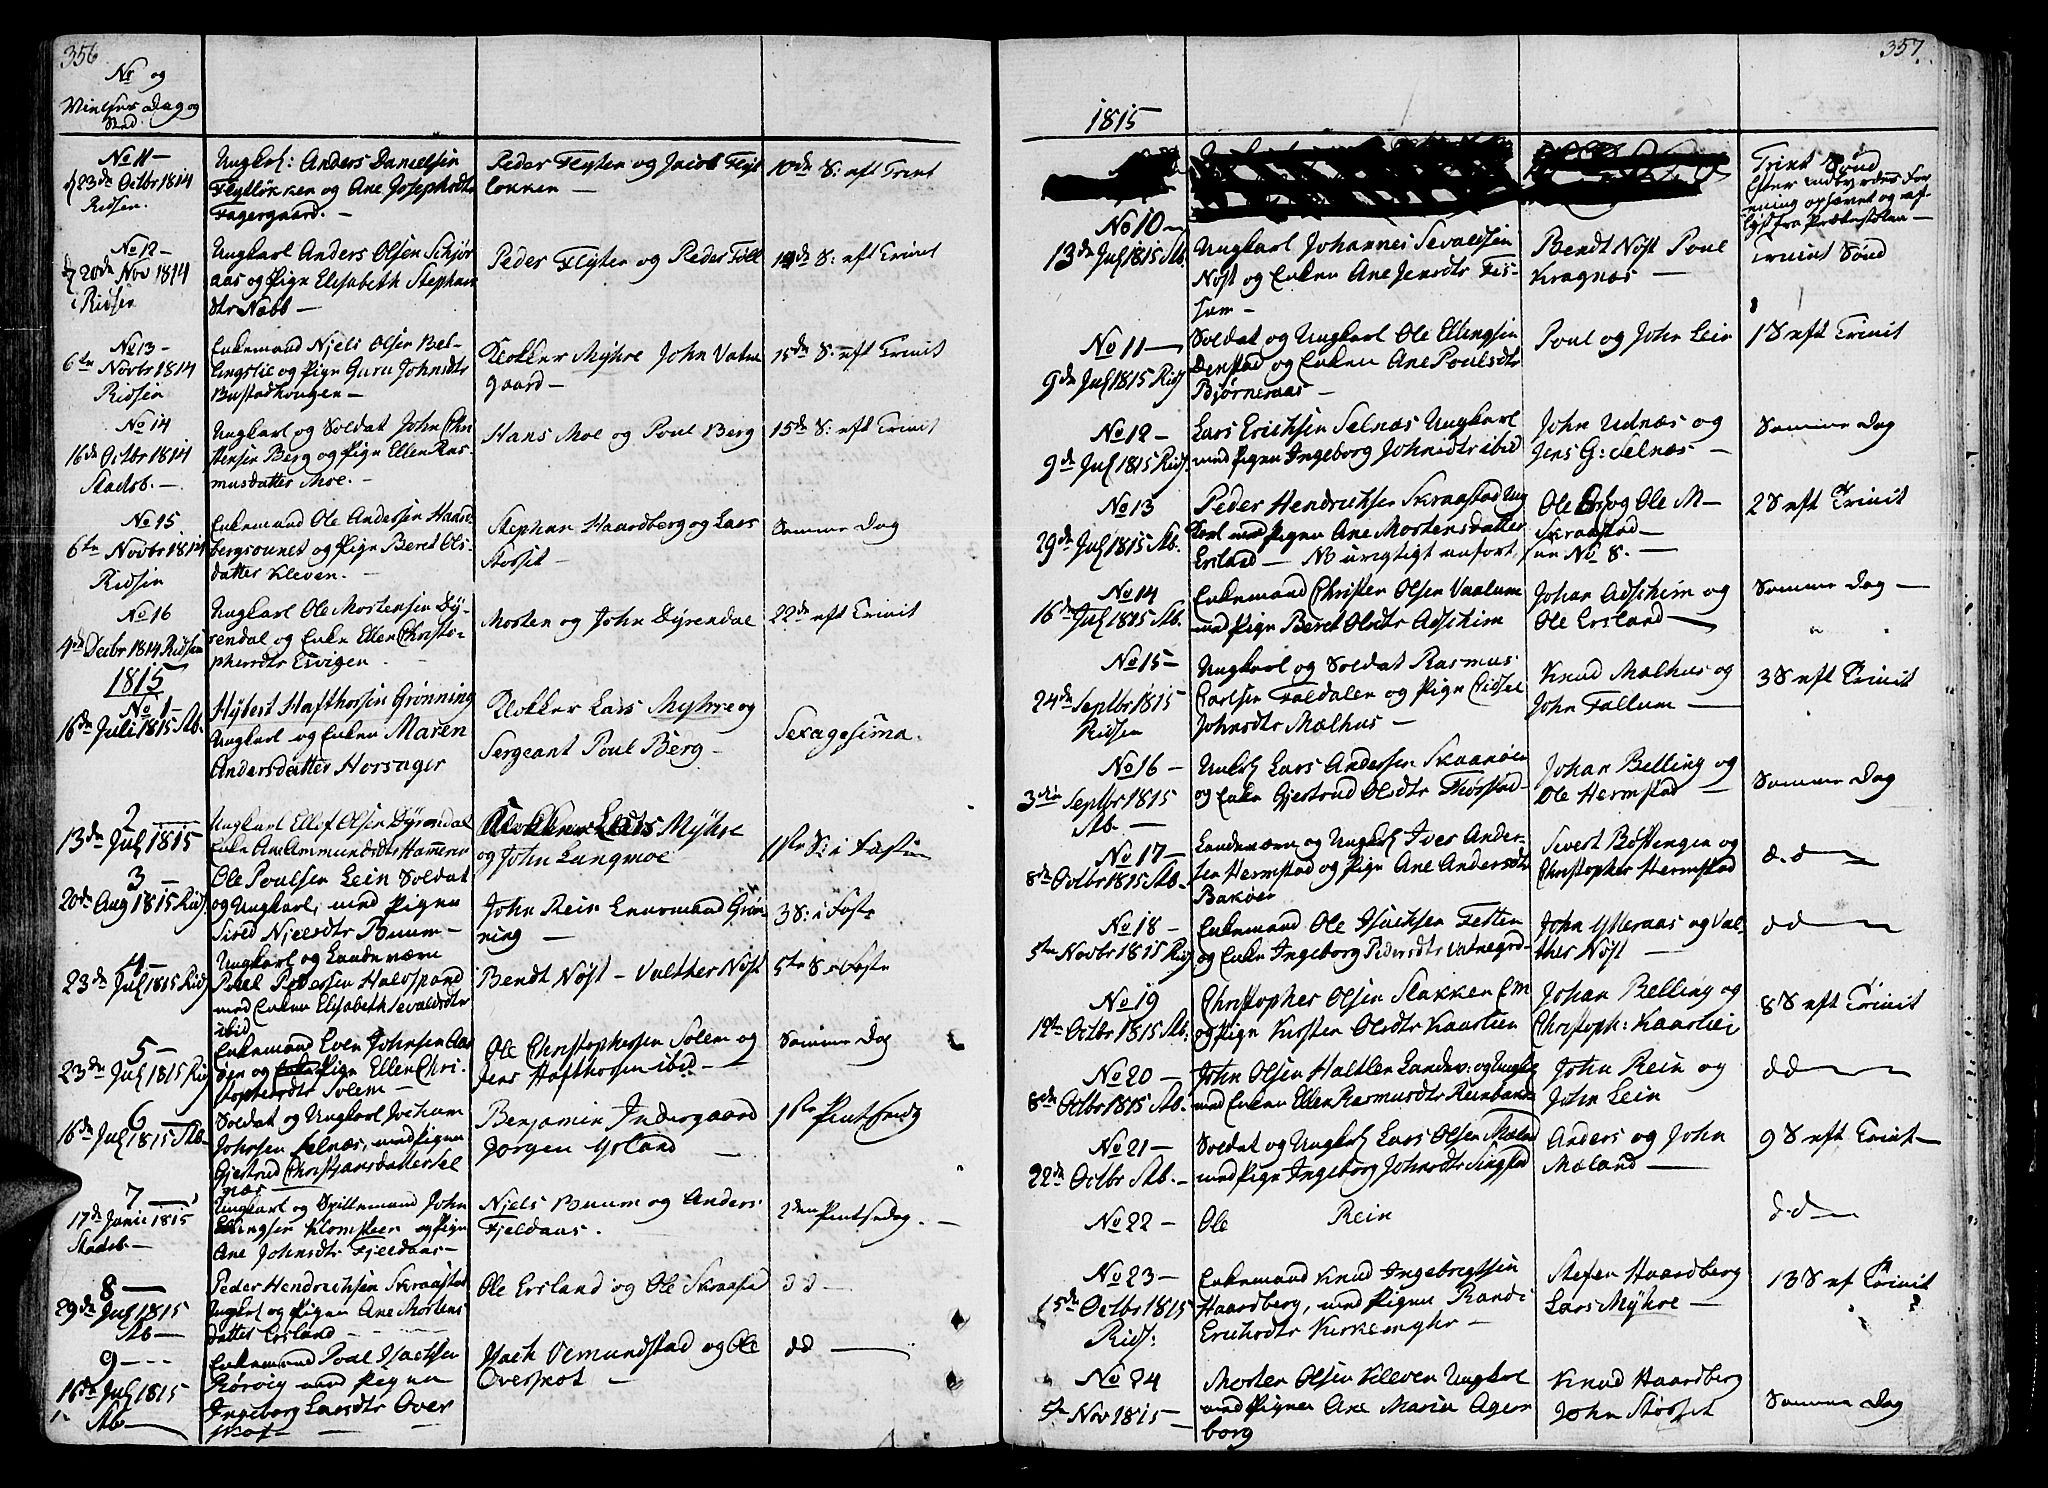 356
No og
Vielses Dag og
Sted.
No 11 —
d 23de Octbr 1814
Ridsen.
Ungkrl: Anders Danielsen
Flytløkken og Ane Josephsdtr
Fagergaard. —
Peder Flyten og Jacob Flyt
løkken —
10de S: eft Trint
No 12 —
d 20de Nov 1814
i Ridsen
Ungkarl Anders Olsen Schjør
aas og Pige Elisabeth Stephan
dtr Nabb —
Peder Flyten og Peder Foll
S: eft Trinit
No 13 —
6te Novbr 1814
Ridsen
Enkemand Njels Olsen Bel-
lingslie og Pige Guru Johnsdtr
Bustadhougen —
Klokker Myhre John Vatn
gaard —
15de S: eft Trinit
No 14
16de Octbr 1814
Stadsb. —
Ungkarl og Soldat John Chri
stensen Berg og Pige Ellen Ras
musdatter Moe. —
Hans Moe og Poul Berg
15de S: eft Trinit
No 15
6te Novbr 1814
Ridsen
Enkemand Ole Andersen Haard-
bergsounet og Pige Beret Ols-
datter Kleven. —
Stephan Haardberg og Lars
Støsset —
Samme Dag
No 16
4de Decbr 1814 Ridsen
Ungkarl Ole Mortensen Dy-
rendal og Enke Ellen Christo-
phersdtr Esvigen —
Morten og John Dyrendal
22de eft Trinit
1815
No 1 —
16de Juli 1815 Stb.
Hybert Hafthorsen Grønning
Ungkarl og Enke Maren
Andersdatter Horsager
Klokker Lars Myhre og
Sergeant Poul Berg —
Sexagesima.
2 —
13de Jul 1815
Ungkarl Ellef Olsen Dyrendal
Enke Ane Ammundsdtr Hammer
Klokker Lars Myhre
og John Langmoe
1ste S: i Fasten
3 —
20de Aug 1815 Rids.
Ole Poulsen Lein Soldat
og Ungkarl, med Pigen
Sired Njelsdtr Buum —
John Rein Lensmand Grøn-
ning —
3 S: i Faste
4 —
23de Jul 1815 Rids
Ungkarl og Landeværn
Poul Pedersen Haldstrand
med Enken Elisabeth Sevaldsdtr
ibid
Bendt Nøst — Valther Nøst
5te S i Faste
5 —
23de Jul 1815 Rids
Enkemand Even Johnsen Aas
den og Pige Ellen Chri-
stophersdtr Solem —
Ole Christophersen Solem og
Jens Hafthorsen ibid —
Samme Dag
6 —
16de Jul 1815 Stb.
Soldat og Ungkarl Jochum
Johnsen Selnæs, med Pigen
Gjertrud Christjansdatter Sel
næs —
Benjamin Indergaard
Jørgen Ysland —
1ste Pintsedag
7 —
17de Junii 1815
Stadsb —
Ungkarl og Spillemand John
Ellingsen Klompen og Pige
Ane Johnsdtr Fjeldaas —
Njels Buum og Anders
Fjeldaas.
2den Pintsedag. —
8 —
29de Jul 1815
Stb —
Peder Hendrichsen Skraastad
Ungkrl og Pigen Ane Mortens
datter Ersland —
Ole Ersland og Ole Skraastad
dd —
9 —
16de Jul 1815
Stb —
Enkemand Poul Isachsen
Rørvig med Pigen
Ingeborg Larsdtr Over
skot —
Isach Vemundstad og Ole
Overskot —
dd —
357.
1815
Trint Sønd
Efter indbyrdes For
ening ophævet og af-
lyst fra Prækestolen —
No 10 —
13de Jul 1815 Stb.
Ungkarl Johannes Sevaldsen
Nøst og Enken Ane Jensdtr Fis-
sum —
Bendt Nøst Poul
Kragnæs —
Trinit Sønd
No 11 —
9de Jul 1815 Rids
Soldat og Ungkarl Ole Ellingsen
Denstad og Enken Ane Poulsdtr
Bjørneraas —
Poul og John Lein
1 S eft Trinit
No 12 —
9de Jul 1815 Rids.
Lars Erichsen Selnæs Ungkarl
med Pigen Ingeborg Johnsdtr ibid
John Udnæs og
Jens G: Selnæs —
Samme Dag
No 13
29de Jul 1815 Stb.
Peder Hendrichsen Skraastad Ung
karl med Pigen Ane Mortensdatter
Ersland — NB urigtigt anført,
Ole og Ole M —
Skraastad —
see No 8. —
2 S eft Trinit
No 14
16de Jul 1815 Stb.
Enkemand Christen Olsen Vaalum
med Pige Beret Olsdtr Adschim
Johan Adschim og
Ole Ersland —
Samme Dag —
No 15 —
24de Septbr 1815
Ridsen
Ungkarl og Soldat Rasmus
Carlsen Foldalen og Pige Eidsel
Johnsdtr Mælhus —
Knud Mælhus og
John Follum —
3 S eft Trinit
No 16 —
3die Septbr 1815
Stb. —
Ungkrl Lars Andersen Skaanøen
og Enke Gjertrud Olsdtr Thøstad —
Johan Belling og
Ole Hermstad —
Samme Dag
No 17 —
8de Octbr 1815 Stb.
Landeværn og Ungkrl Iver Ander-
sen Hermstad og Pige Ane Andersdtr
Bakøen
Sivert Bøstengen og
Christopher Hermstad
d. d —
No 18 —
5te Novbr 1815 Rids
Enkemand Ole Isachsen Fetten
og Enke Ingeborg Pedersdtr Vatnegrd —
John Ytteraas og Val-
ther Nøst —
dd —
No 19
12te Octbr 1815 Stb.
Christopher Olsen Stakken EM
og Pige Kirsten Olsdtr Kaarlien
Johan Belling og
Christoph: Kaarliei
8 S eft Trinit
No 20 —
8de Octbr 1815 Stb. —
John Olsen Haltlen Landev. og Ungkrl
med Enken Ellen Rasmusdtr Reinbande
John Rein og
John Lein
dd —
No 21 —
22de Octbr Stb. —
Soldat og Ungkrl Lars Olsen Mæland
med Pige Ingeborg Johnsdtr Singstad
Anders og John
Mæland —
9 S eft Trinit —
No 22 —
Ole Rein
d. d —
No 23 —
15de Octbr 1815
Rids:
Enkemand Knud Ingebregtsen
Haardberg, med Pigen Randi
Erichsdtr Kirkemyhr —
Stefen Haardberg
Lars Myhre —
13 S ef Trinit
No 24
5te Nov 1815 —
Morten Olsen Kleven Ungkrl
med Pigen Ane Maria Ager
borg
Knud Haardberg
John Støsset
Samme Dag